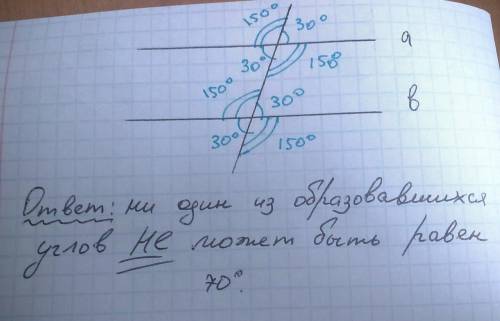 150° 30°
a
30° 150°
150° 30°
в
30° 150°
Ответ: ни один из образовавшихся
углов НЕ может быть равен
70°.